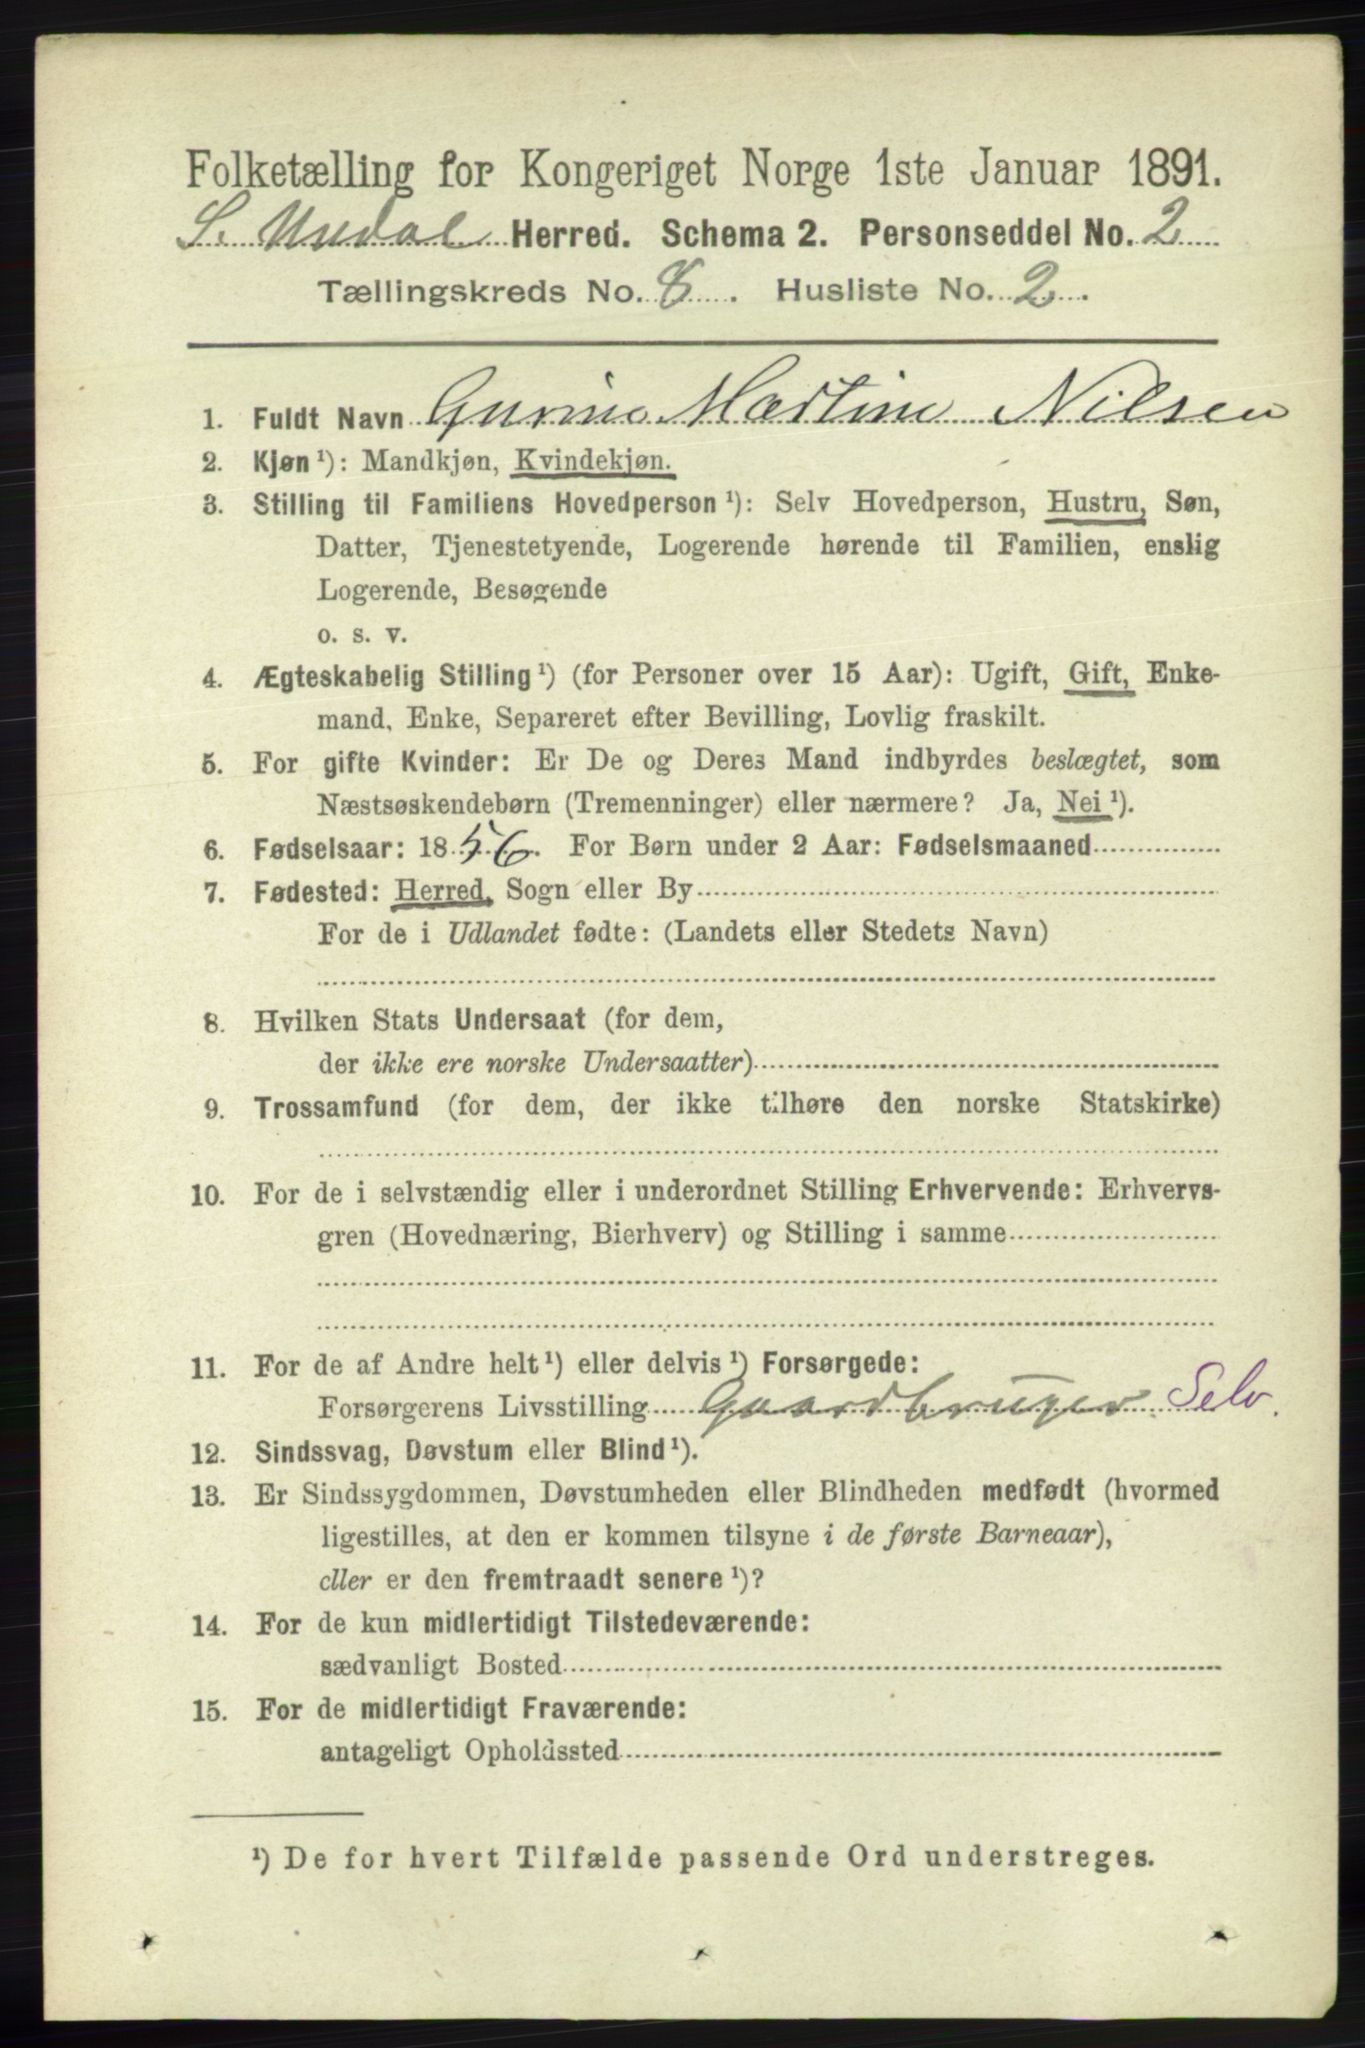 Folketælling for Kongeriget Norge 1ste Januar 1891.
S. Undal Herred. Schema 2. Personseddel No. 2
Tællingskreds No. 8. Husliste No. 2.
1. Fuldt Navn Gurine Martine Nilsen
2. Kjøn ¹): Mandkjøn, Kvindekjøn.
3. Stilling til Familiens Hovedperson ¹): Selv Hovedperson, Hustru, Søn,
Datter, Tjenestetyende, Logerende hørende til Familien, enslig
Logerende, Besøgende
o. s. v.
4. Ægteskabelig Stilling ¹) (for Personer over 15 Aar): Ugift, Gift, Enke-
mand, Enke, Separeret efter Bevilling, Lovlig fraskilt.
5. For gifte Kvinder: Er De og Deres Mand indbyrdes beslægtet, som
Næstsøskendebørn (Tremenninger) eller nærmere? Ja, Nei ¹).
6. Fødselsaar: 1856. For Børn under 2 Aar: Fødselsmaaned
7. Fødested: Herred, Sogn eller By
For de i Udlandet fødte: (Landets eller Stedets Navn)
8. Hvilken Stats Undersaat (for dem,
der ikke ere norske Undersaatter)
9. Trossamfund (for dem, der ikke tilhøre den norske Statskirke)
10. For de i selvstændig eller i underordnet Stilling Erhvervende: Erhvervs-
gren (Hovednæring, Bierhverv) og Stilling i samme
11. For de af Andre helt ¹) eller delvis ¹) Forsørgede:
Forsørgerens Livsstilling Gaardbruger. Selv.
12. Sindssvag, Døvstum eller Blind ¹).
13. Er Sindssygdommen, Døvstumheden eller Blindheden medfødt (hvormed
ligestilles, at den er kommen tilsyne i de første Barneaar),
eller er den fremtraadt senere ¹)?
14. For de kun midlertidigt Tilstedeværende:
sædvanligt Bosted
15. For de midlertidigt Fraværende:
antageligt Opholdssted
¹) De for hvert Tilfælde passende Ord understreges.